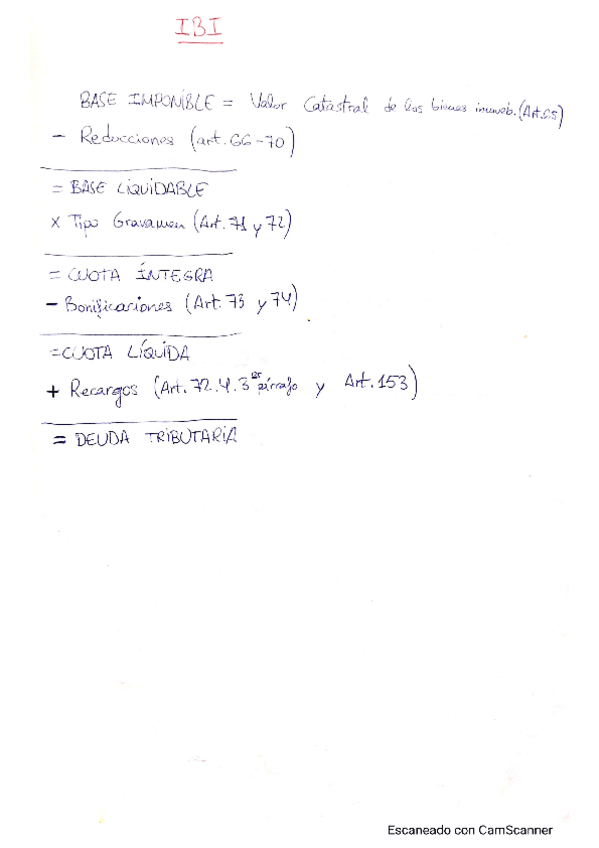 IBI
BASE IMPONIBLE = Valor Catastral de los bienes inmueb. (Art.65)
- Reducciones (art. 66-70)
= BASE LIQUIDABLE
x Tipo Gravamen (Art. 71 y 72)
= CUOTA ÍNTEGRA
- Bonificaciones (Art. 73 y 74)
= CUOTA LÍQUIDA
+ Recargos (Art. 72.4.3er párrafo y Art. 153)
= DEUDA TRIBUTARIA
Escaneado con CamScanner